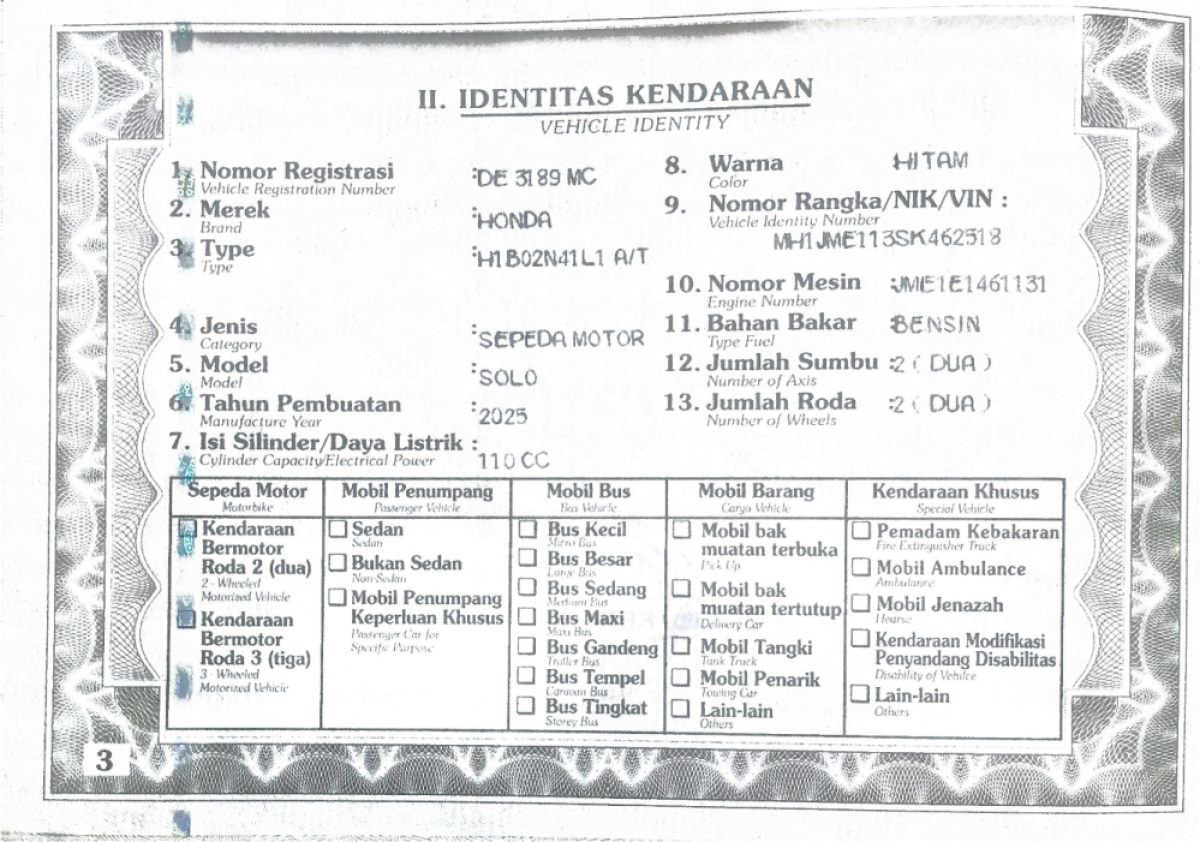 II. IDENTITAS KENDARAAN
VEHICLE IDENTITY
1. Nomor Registrasi :DE 3189 MC
Vehicle Registration Number
2. Merek :HONDA
Brand
3. Type :H1B02N41L1 A/T
Type
4. Jenis :SEPEDA MOTOR
Category
5. Model :SOLO
Model
6. Tahun Pembuatan :2025
Manufacture Year
7. Isi Silinder/Daya Listrik : 110 CC
Cylinder Capacity/Electrical Power
8. Warna :HITAM
Color
9. Nomor Rangka/NIK/VIN :
Vehicle Identity Number
MH1JME113SK462518
10. Nomor Mesin :JME1E1461131
Engine Number
11. Bahan Bakar :BENSIN
Type Fuel
12. Jumlah Sumbu :2 ( DUA )
Number of Axis
13. Jumlah Roda :2 ( DUA )
Number of Wheels
Sepeda Motor
Motorbike
Kendaraan
Bermotor
Roda 2 (dua)
2 - Wheeled
Motorized Vehicle
Kendaraan
Bermotor
Roda 3 (tiga)
3 - Wheeled
Motorized Vehicle
Mobil Penumpang
Passenger Vehicle
Sedan
Sedan
Bukan Sedan
Non-Sedan
Mobil Penumpang
Keperluan Khusus
Passenger Car for
Specific Purpose
Mobil Bus
Bus Vehicle
Bus Kecil
Micro Bus
Bus Besar
Large Bus
Bus Sedang
Medium Bus
Bus Maxi
Maxi Bus
Bus Gandeng
Trailer Bus
Bus Tempel
Caravan Bus
Bus Tingkat
Storey Bus
Mobil Barang
Cargo Vehicle
Mobil bak
muatan terbuka
Pick Up
Mobil bak
muatan tertutup
Delivery Car
Mobil Tangki
Tank Truck
Mobil Penarik
Towing Car
Lain-lain
Others
Kendaraan Khusus
Special Vehicle
Pemadam Kebakaran
Fire Extinguisher Truck
Mobil Ambulance
Ambulance
Mobil Jenazah
Hearse
Kendaraan Modifikasi
Penyandang Disabilitas
Disability of Vehilce
Lain-lain
Others
3